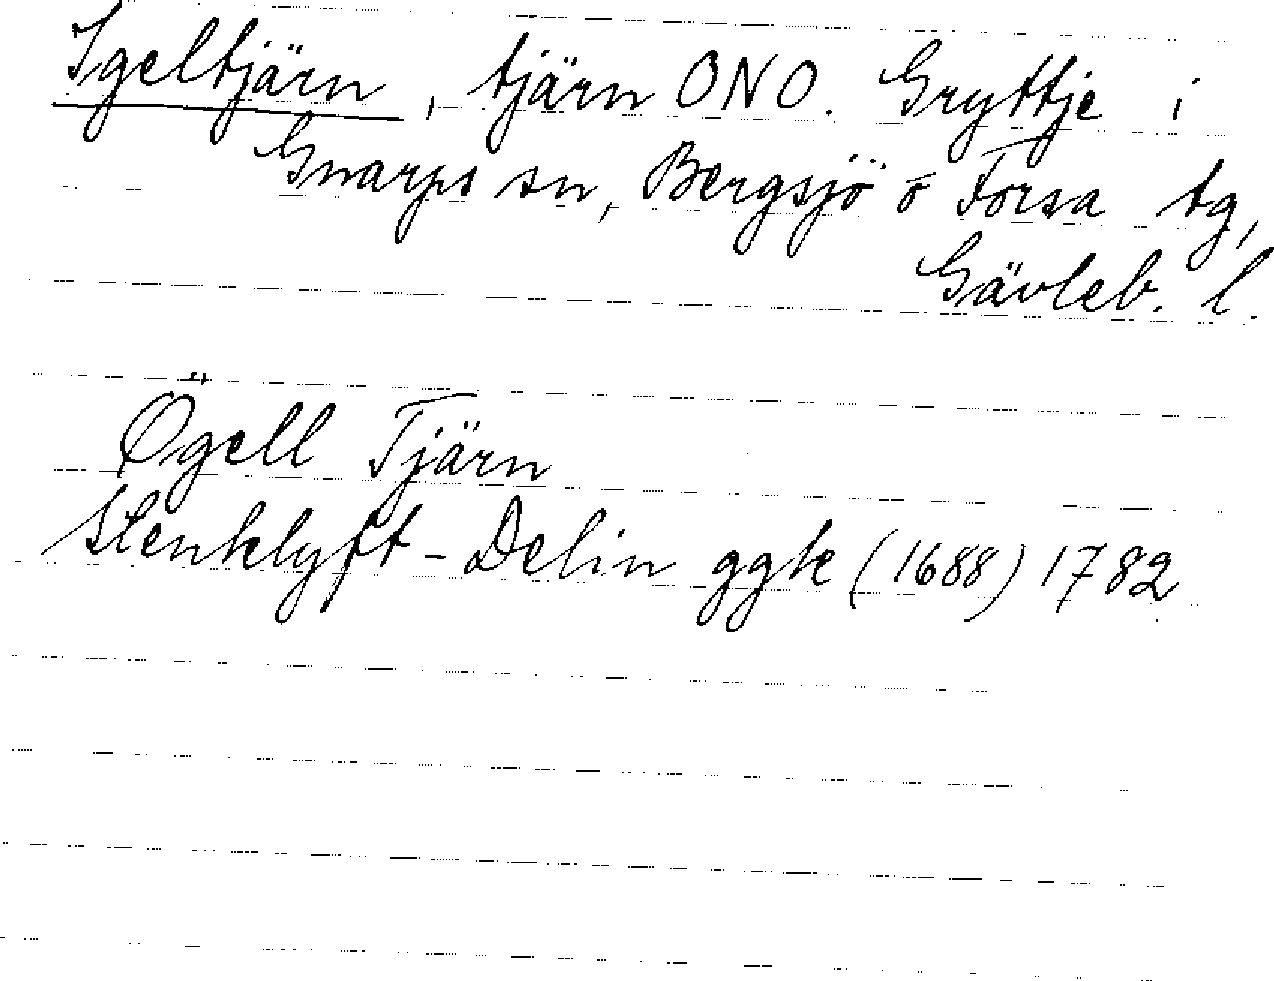 Igeltjärn, tjärn ONO. Gryttje i
Gnarps sn, Bergsjö o Forsa tg,
Gävleb. l.
Ögell Tjärn
Stenklyft - Delin ggk (1688) 1782